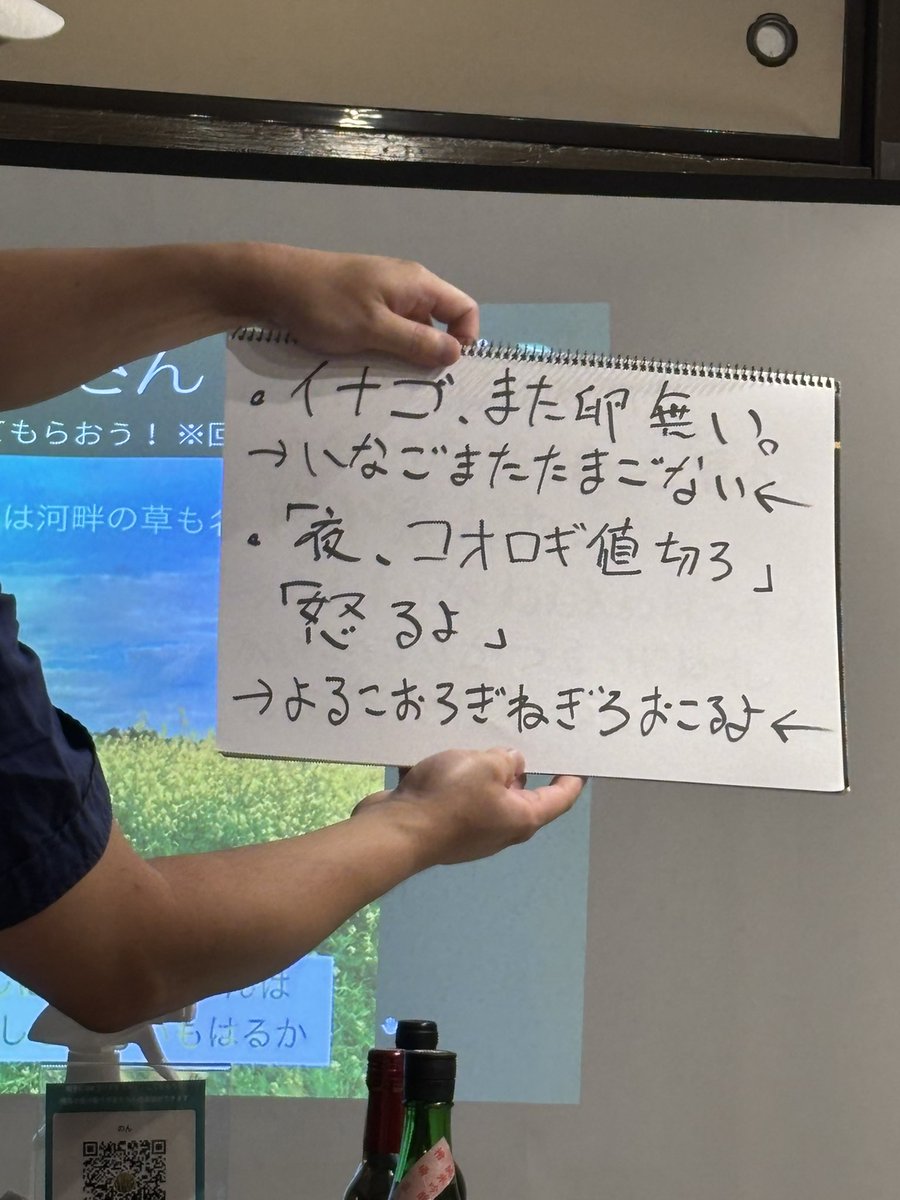 さん
てもらおう！ ※回
は河畔の草も
・イナゴ、また卵無い。
→いなごまたたまごない←
・「夜、コオロギ値切ろ」
「怒るよ」
→よるこおろぎねぎろおこるよ←
んは
し
もはるか
のん